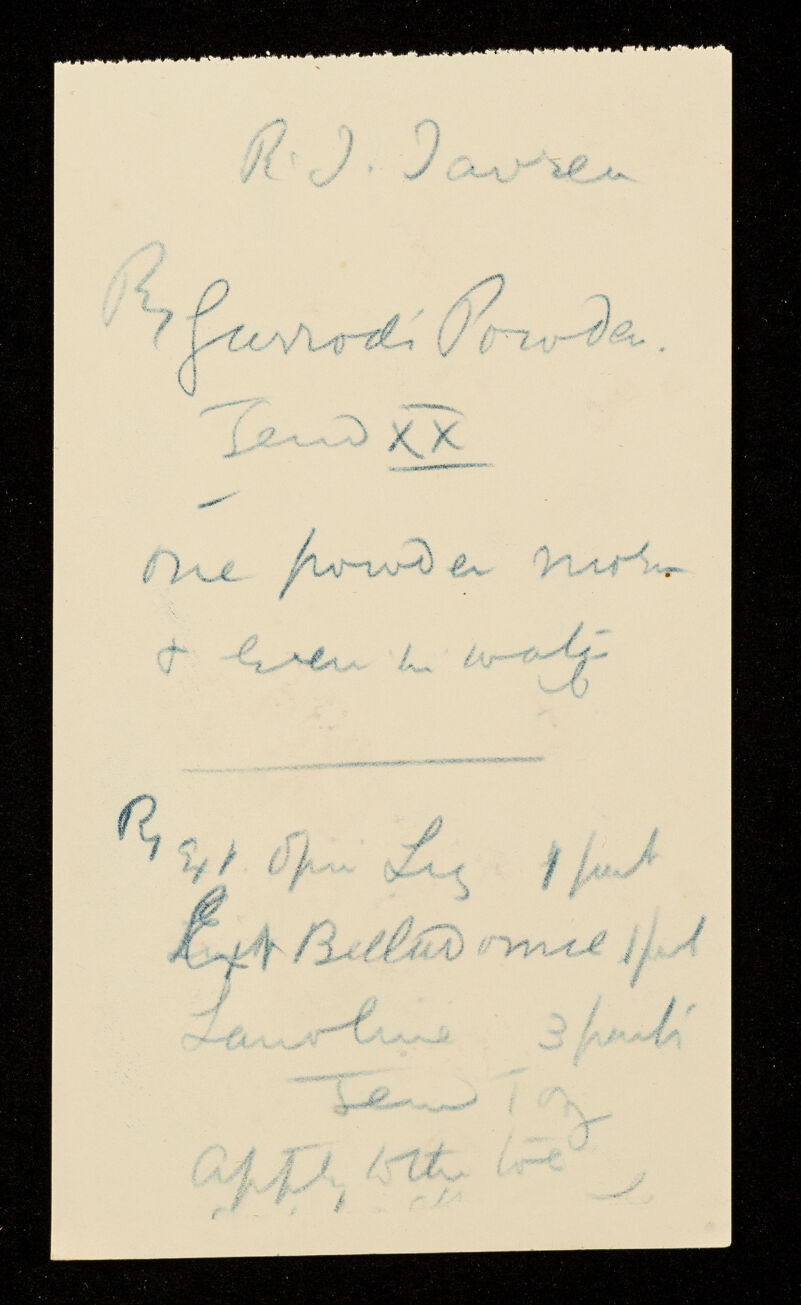 R. J.
Rx Garrod's Powder.
Send XX
one powder morn
& even in water
Rx Ext. Opii Liq 1 part
Ext Belladonnae 1 part
Lanoline 3 parts
Send 1 oz
Apply to the toe